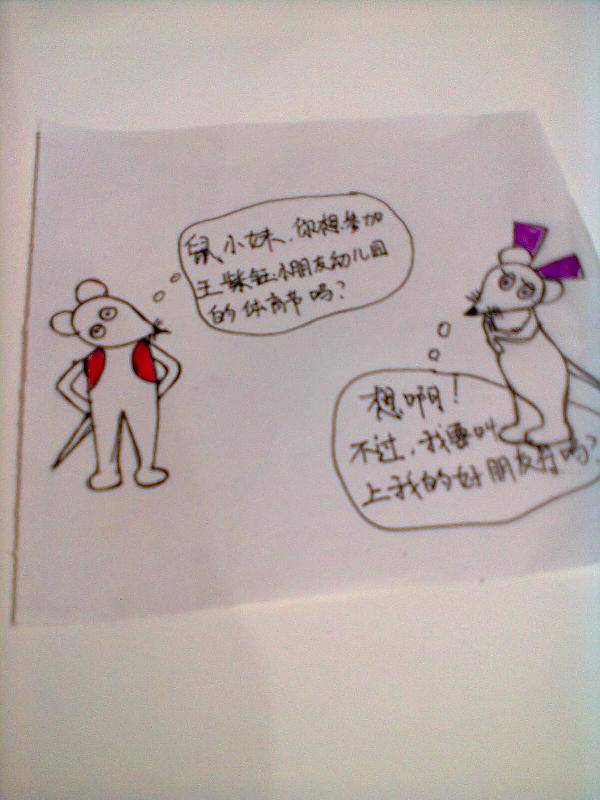 鼠小妹，你想参加
王紫钰小朋友幼儿园
的体育节吗？
想啊！
不过，我要叫
上我的好朋友行吗？